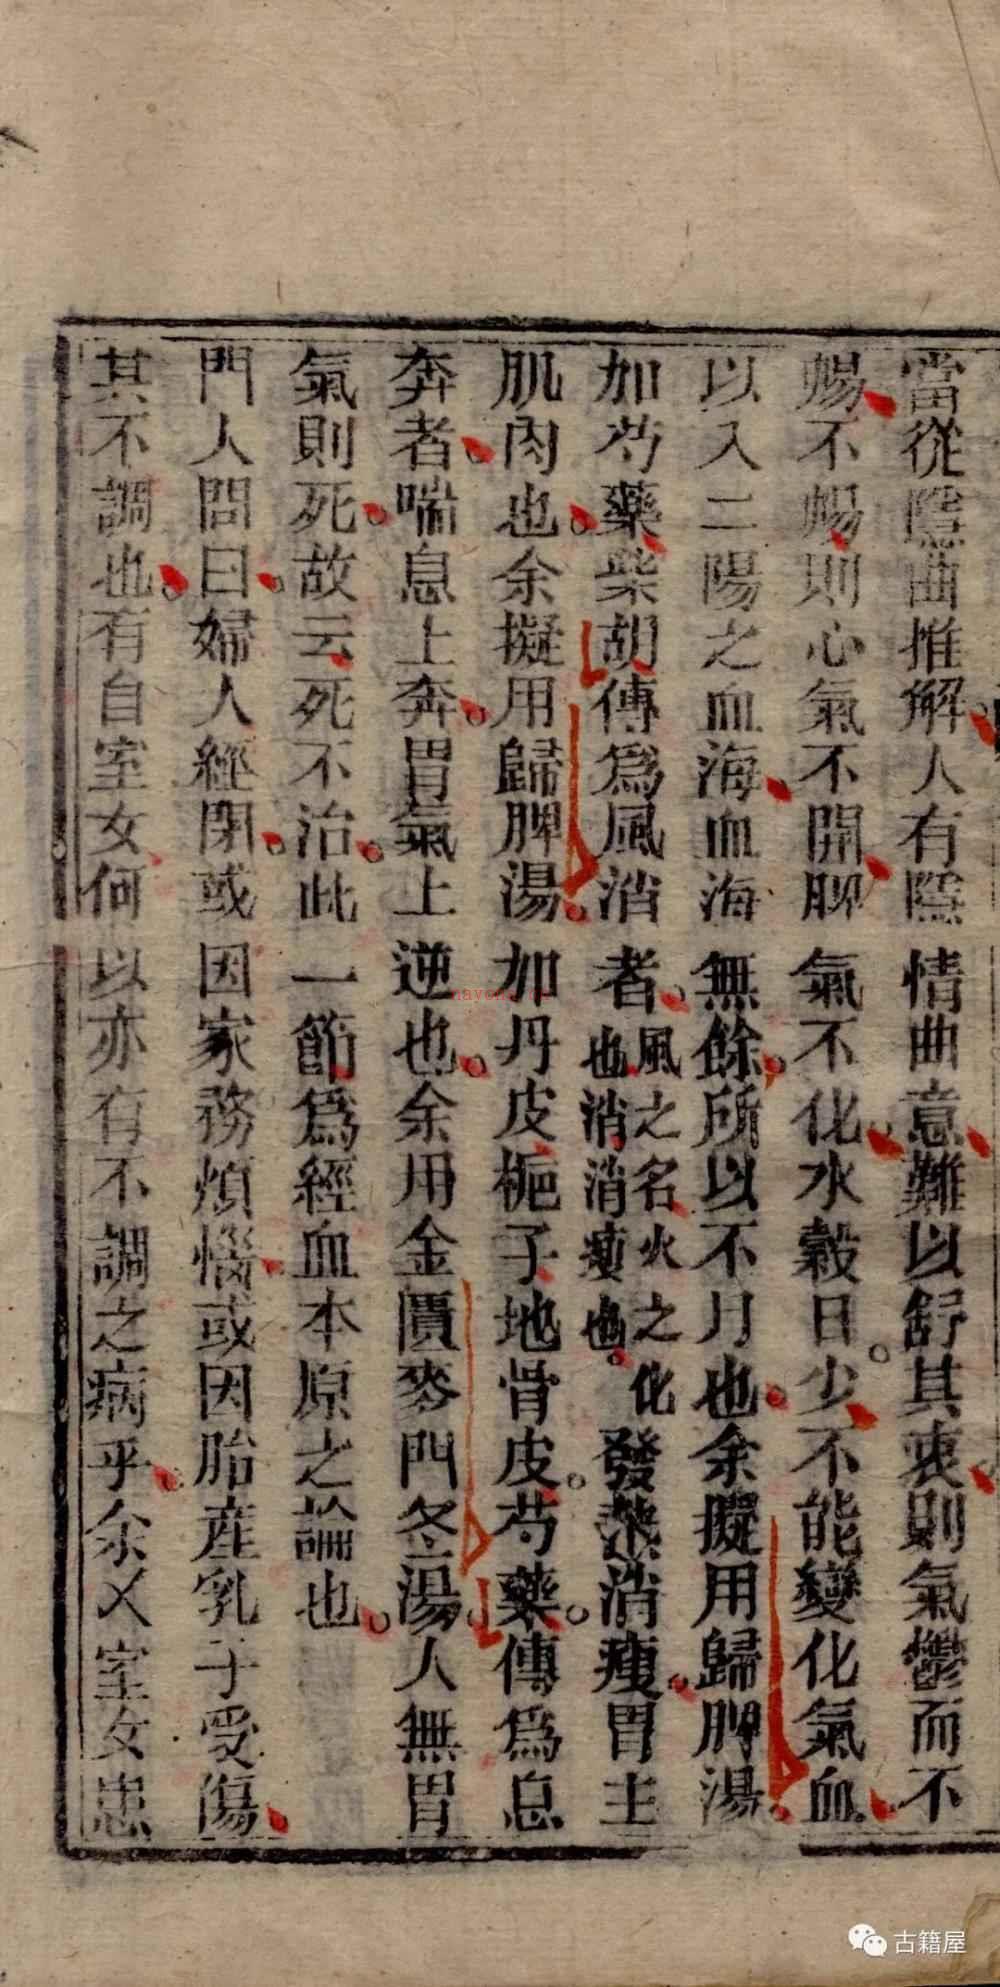 當從隱曲推解人有隱情曲意難以舒其衷則氣鬱而不
暢不暢則心氣不開脾氣不化水穀日少不能變化氣血
以入二陽之血海血海無餘所以不月也余擬用歸脾湯
加芍藥柴胡傳爲風消者風之名火之化也消消瘦也發熱消瘦胃主
肌肉也余擬用歸脾湯加丹皮梔子地骨皮芍藥傳爲息
奔者喘息上奔胃氣上逆也余用金匱麥門冬湯人無胃
氣則死故云死不治此一節爲經血本原之論也
門人問曰婦人經閉或因家務煩惱或因胎產乳子受傷
其不調也有自室女何以亦有不調之病乎余乂室女患
navone.cc
古籍屋